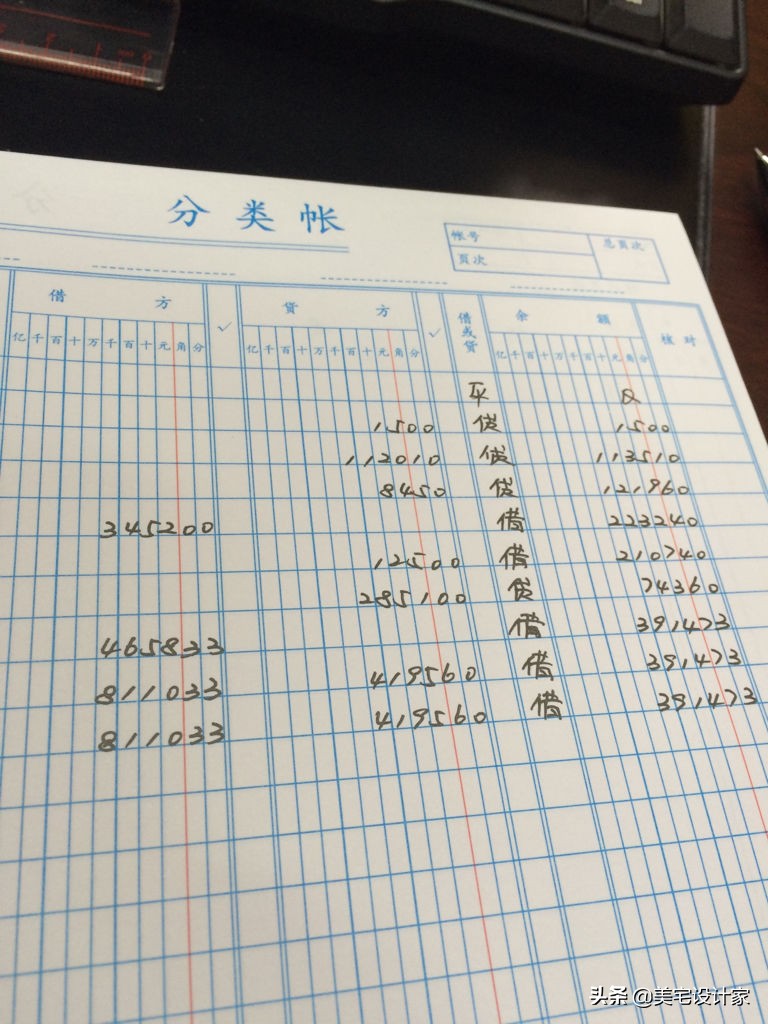 分类帐
帐号 总页次
页次
借方 ✓ 贷方 ✓ 借或贷 余额 核对
亿千百十万千百十元角分 亿千百十万千百十元角分 亿千百十万千百十元角分
平
1500 贷 1500
112010 贷 113510
8450 贷 121960
345200 借 223240
12500 借 210740
285100 贷 74360
465833 借 391473
811033 419560 借 391473
811033 419560 借 391473
头条 @美宅设计家